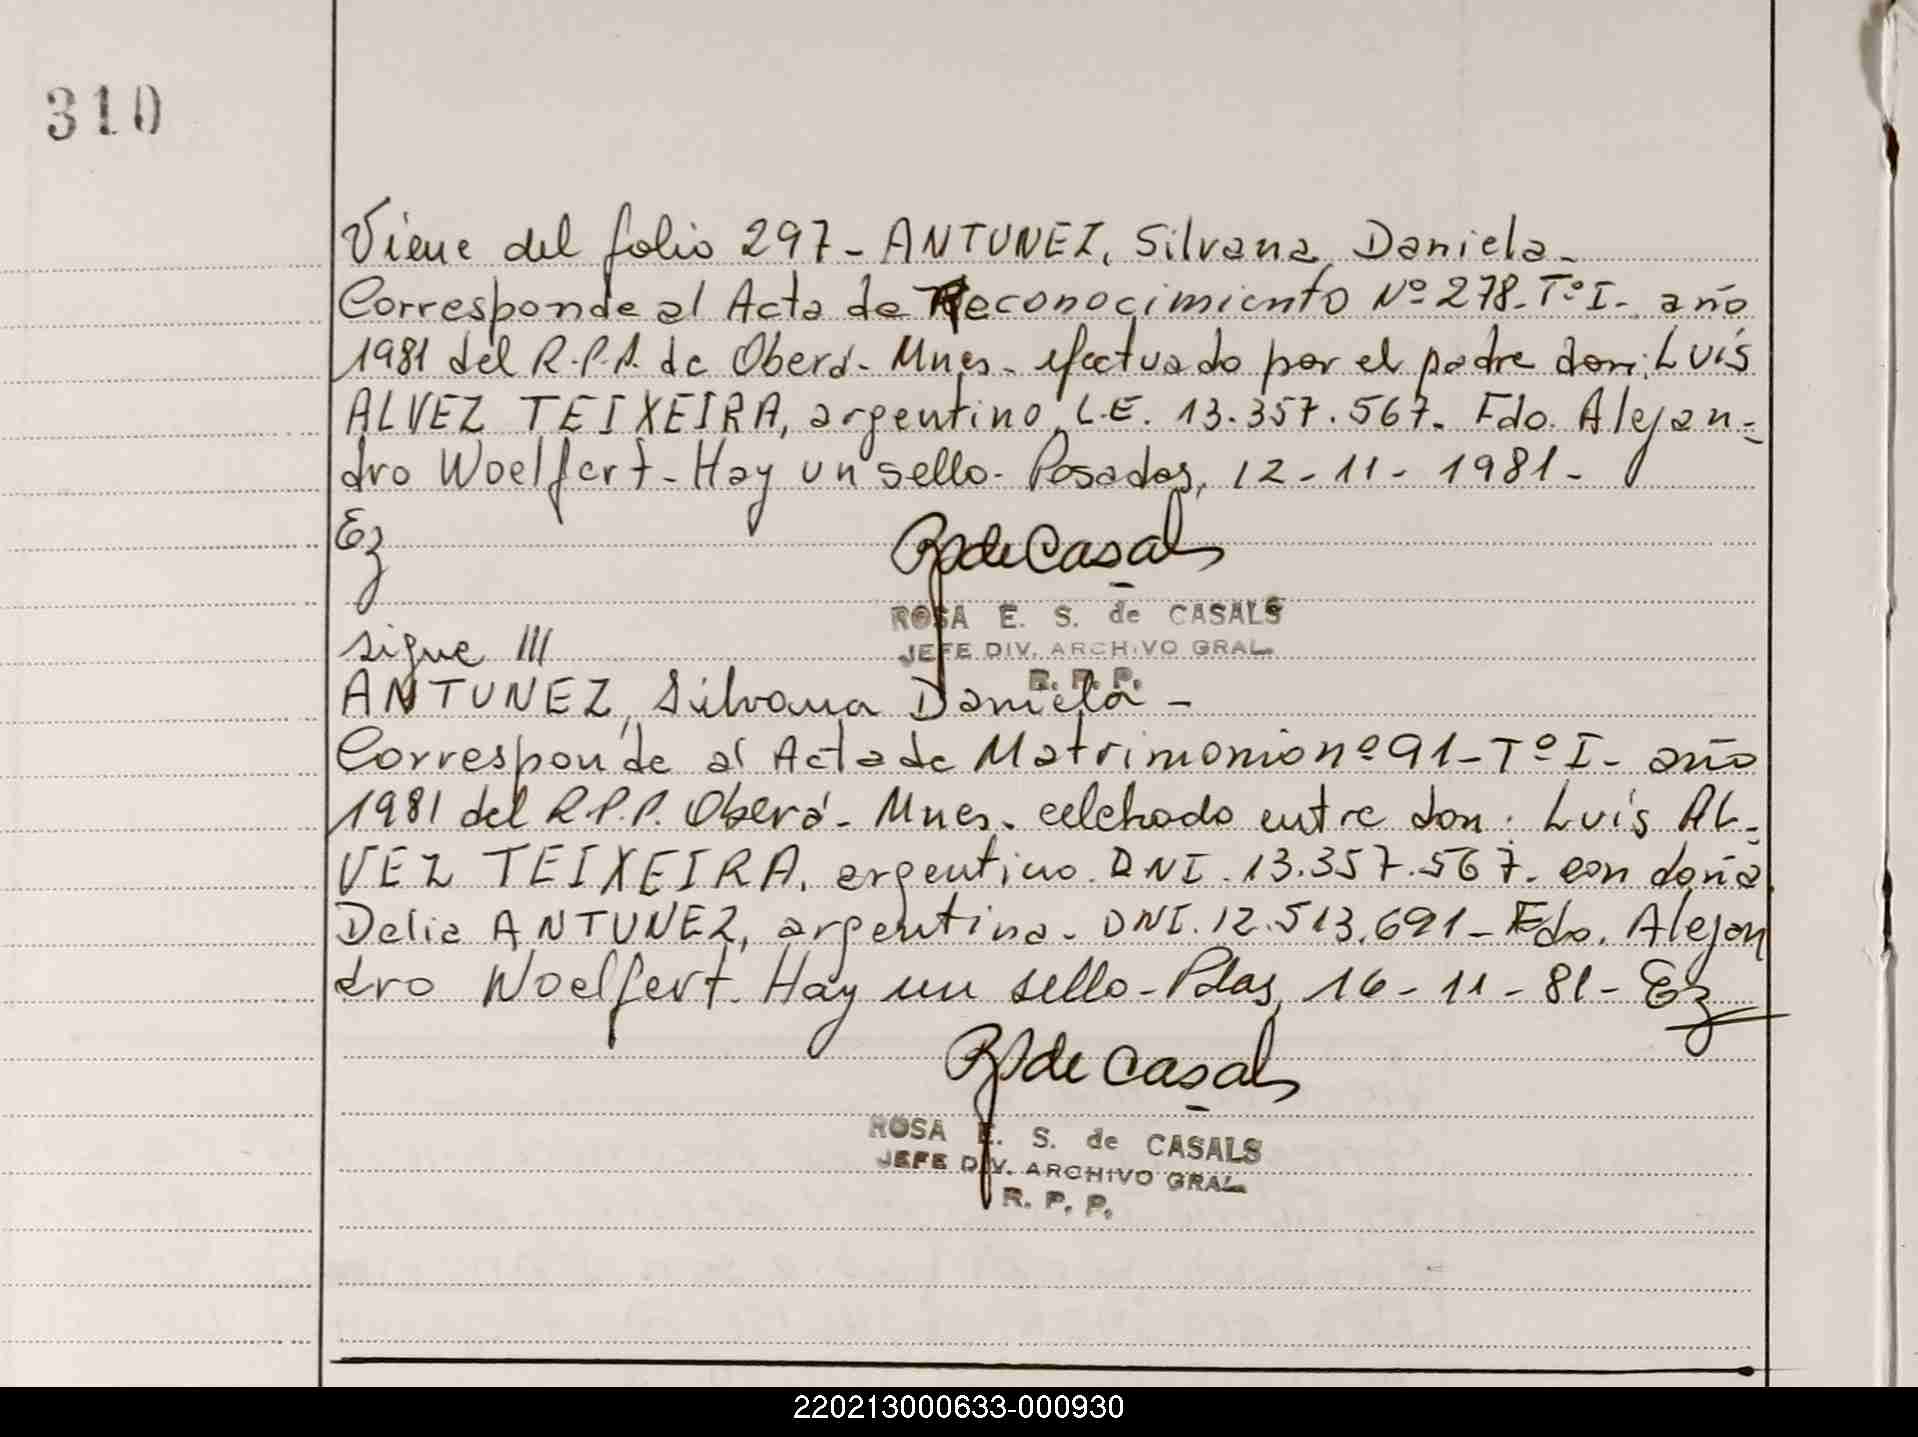 310
Viene del folio 297- ANTUNEZ, Silvana Daniela-
Corresponde al Acta de Reconocimiento Nº 278-Tº I- año
1981 del R.P.P. de Oberá- Mnes- efectuado por el padre don: Luis
ALVEZ TEIXEIRA, argentino, L.E. 13.357.567. Fdo. Alejan-
dro Woelfert- Hay un sello- Posadas, 12-11-1981-
Ez
R de Casals
ROSA E. S. de CASALS
JEFE DIV. ARCHIVO GRAL.
R. P. P.
sigue ///
ANTUNEZ, Silvana Daniela-
Corresponde al Acta de Matrimonio nº 91-Tº I- año
1981 del R.P.P. Oberá- Mnes- celebrado entre don: Luis AL-
VEZ TEIXEIRA, argentino. DNI. 13.357.567. con doña
Delia ANTUNEZ, argentina- DNI. 12.513.691- Fdo. Alejan
dro Woelfert. Hay un sello- Pdas, 16-11-81- Ez
R de Casals
ROSA E. S. de CASALS
JEFE DIV. ARCHIVO GRAL.
R. P. P.
220213000633-000930